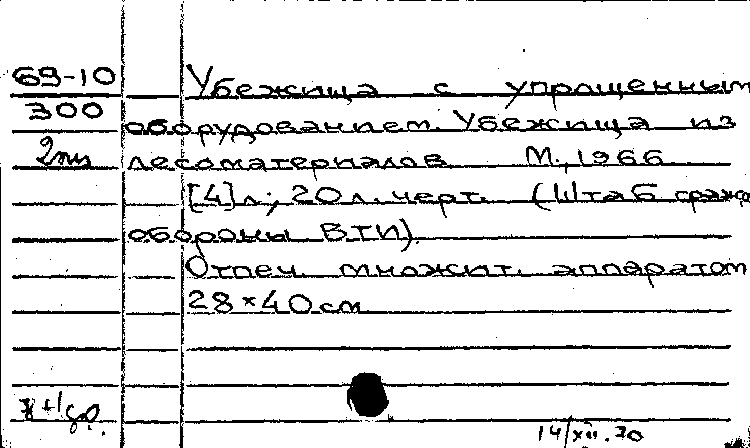 69-10 Убежища с упрощенным
300 оборудованием. Убежища из
2 лесоматериалов М., 1966
[4] л.; 20 л. черт. (Штаб гражд.
обороны ВТИ).
Отпеч. множит. аппаратом
28×40 см
14/XII.70